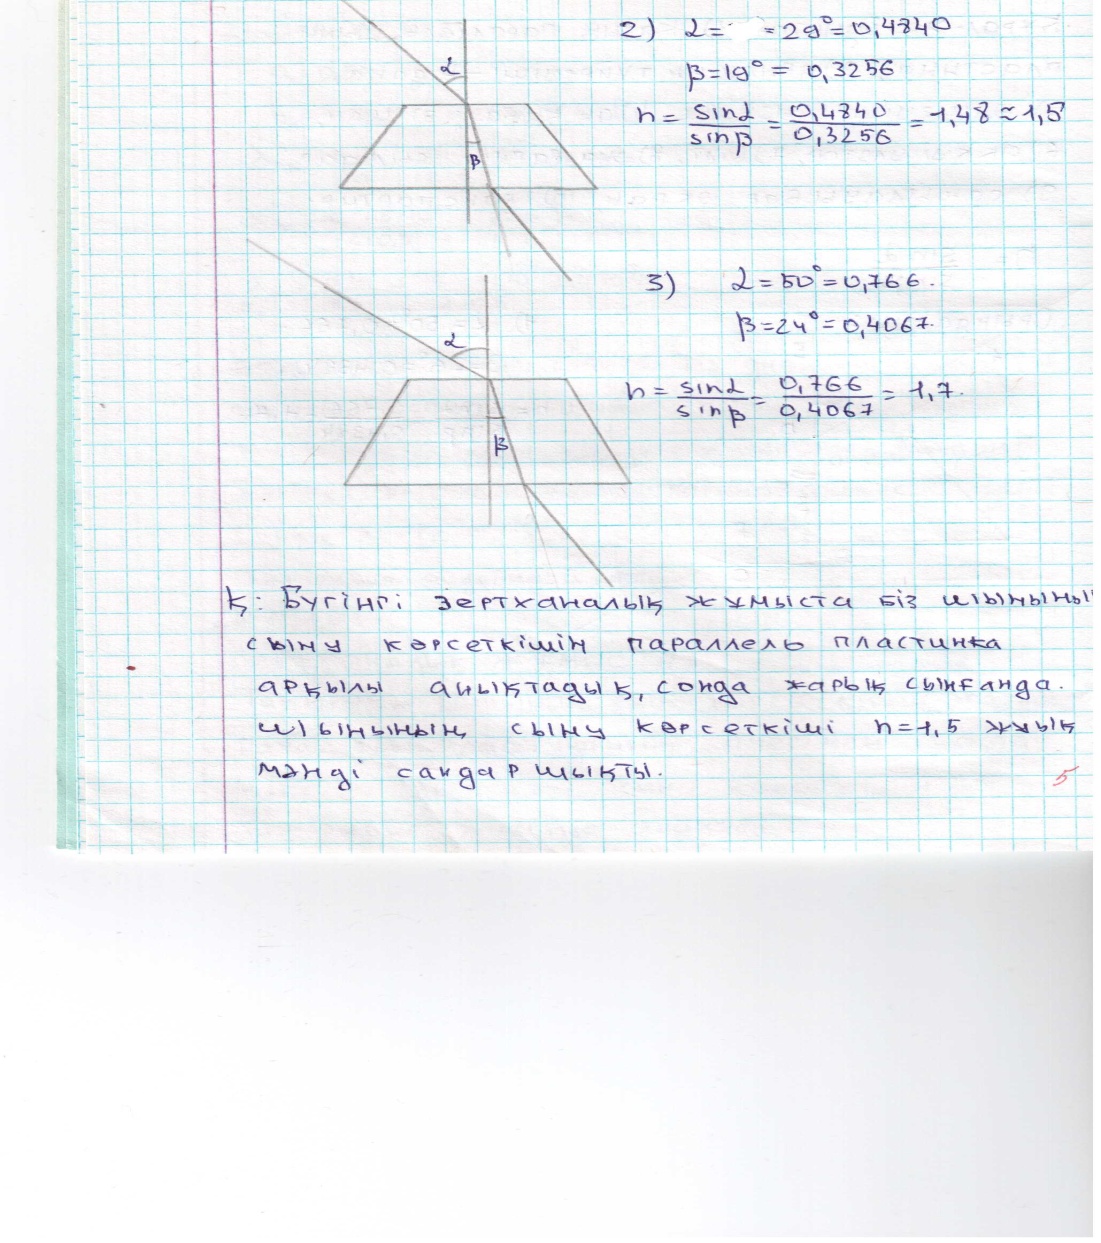 2) α = = 29° = 0,4840
β = 19° = 0,3256
n = sinα/sinβ = 0,4840/0,3256 = 1,48 ≈ 1,5
α
β
3) α = 50° = 0,766.
β = 24° = 0,4067.
n = sinα/sinβ = 0,766/0,4067 = 1,7.
α
β
Қ: Бүгінгі зертханалық жұмыста біз шынының
сыну көрсеткішін параллель пластинка
арқылы анықтадық, сонда жарық сынғанда.
шынының сыну көрсеткіші n=1,5 жуық
мәнді сандар шықты.
5